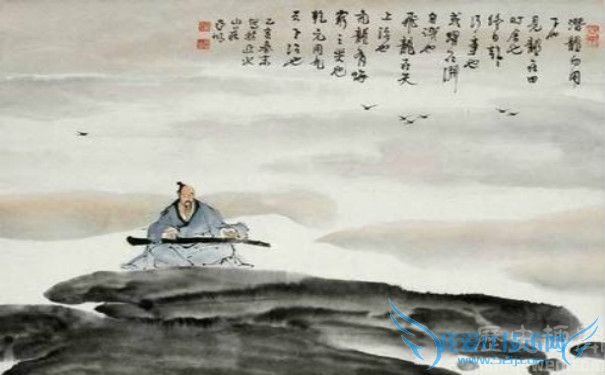 潛龍勿用
下也
見龍在田
时舍也
終日乾乾
行事也
或躍在渊
自試也
飛龍在天
上治也
亢龍有悔
窮之災也
乾元用九
天下治也
乙亥春末
山莊